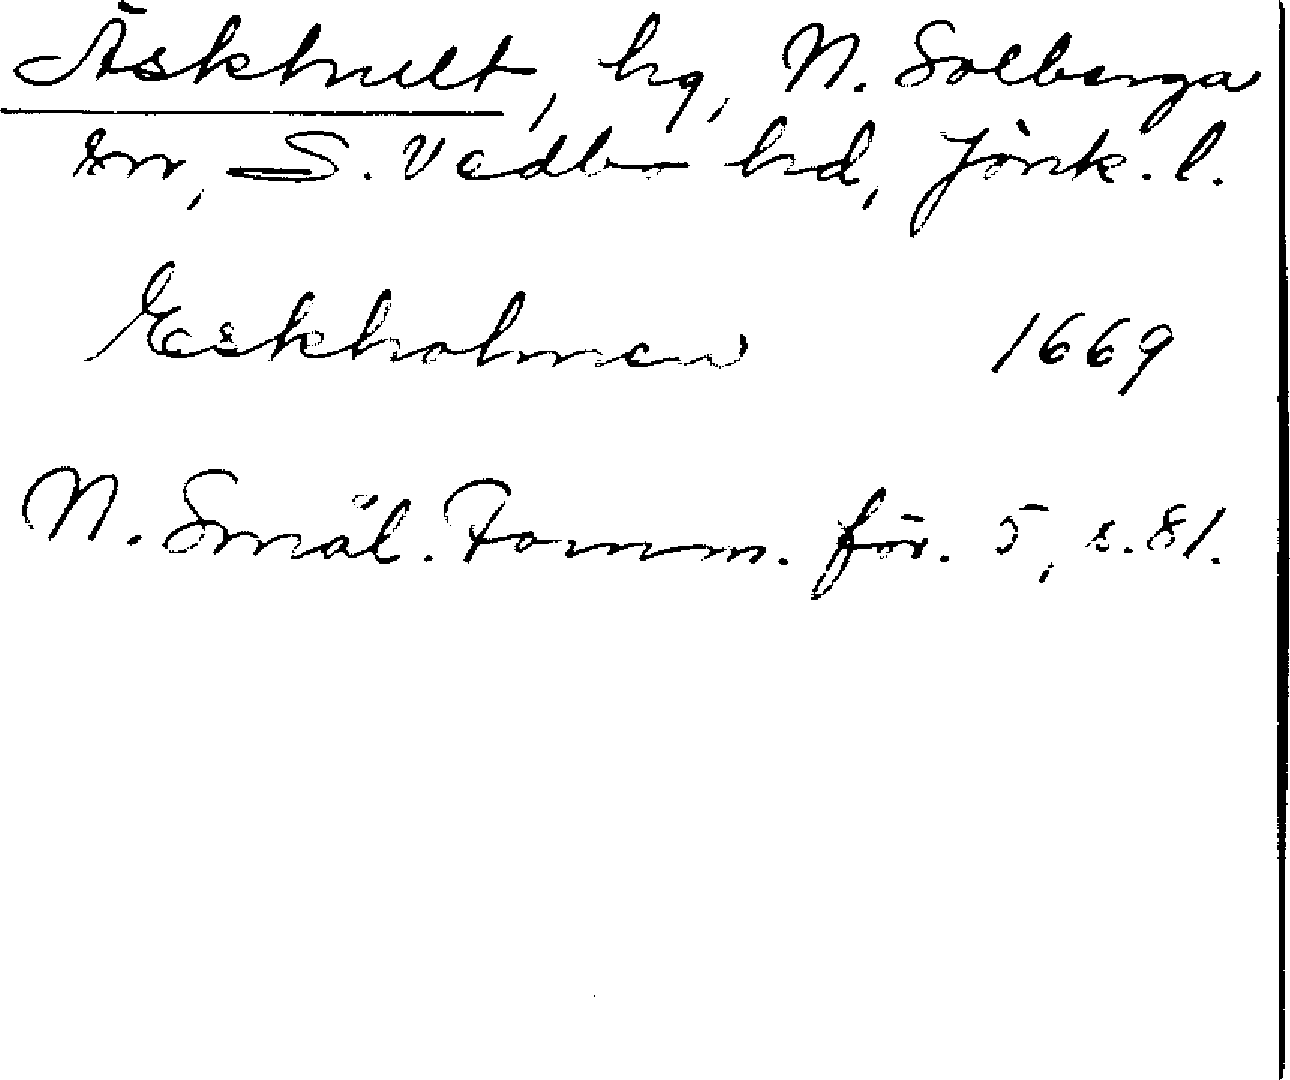 Äskhult, hg, N. Solberga
sn, S. Vedbo hd, Jönk. l.
Eskholmen 1669
N. Smål. Fornm. för. 5, s. 81.